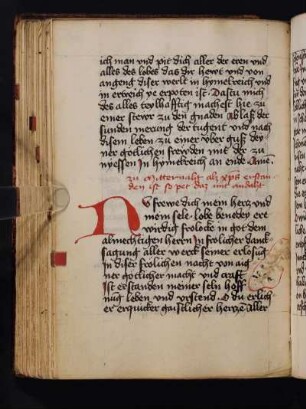 ich man und pit dich aller der eren und
alles des lobes das dir hewt und von
angeng diser werlt in hymelreich und
in erdreich ye erpoten ist. Dastu mich
des alles teylhafftig machest hie zu
einer stewr zu den gnaden ablas der
sunden merung der tugent und nach
disem leben zu einer uber guss dey
ner götlichen frewden mit der zu
nyessen in hymelreich an ende Ame.
zu Metten als xps erstan
den ist so pet daz mit andaht
Nu frewe dich mein hercz und
mein sele lobe benedey ere
wirdig frolock in got dem
almechtigen herren In frolicher danck
sagung aller werck seiner erlosug
In diser frolichen nacht von aig
ner götlicher macht und craft
Ist erstanden meiner seln hoff
nug leben und urstend. O du erlich
er erquicker gaistlicher hercze Aller